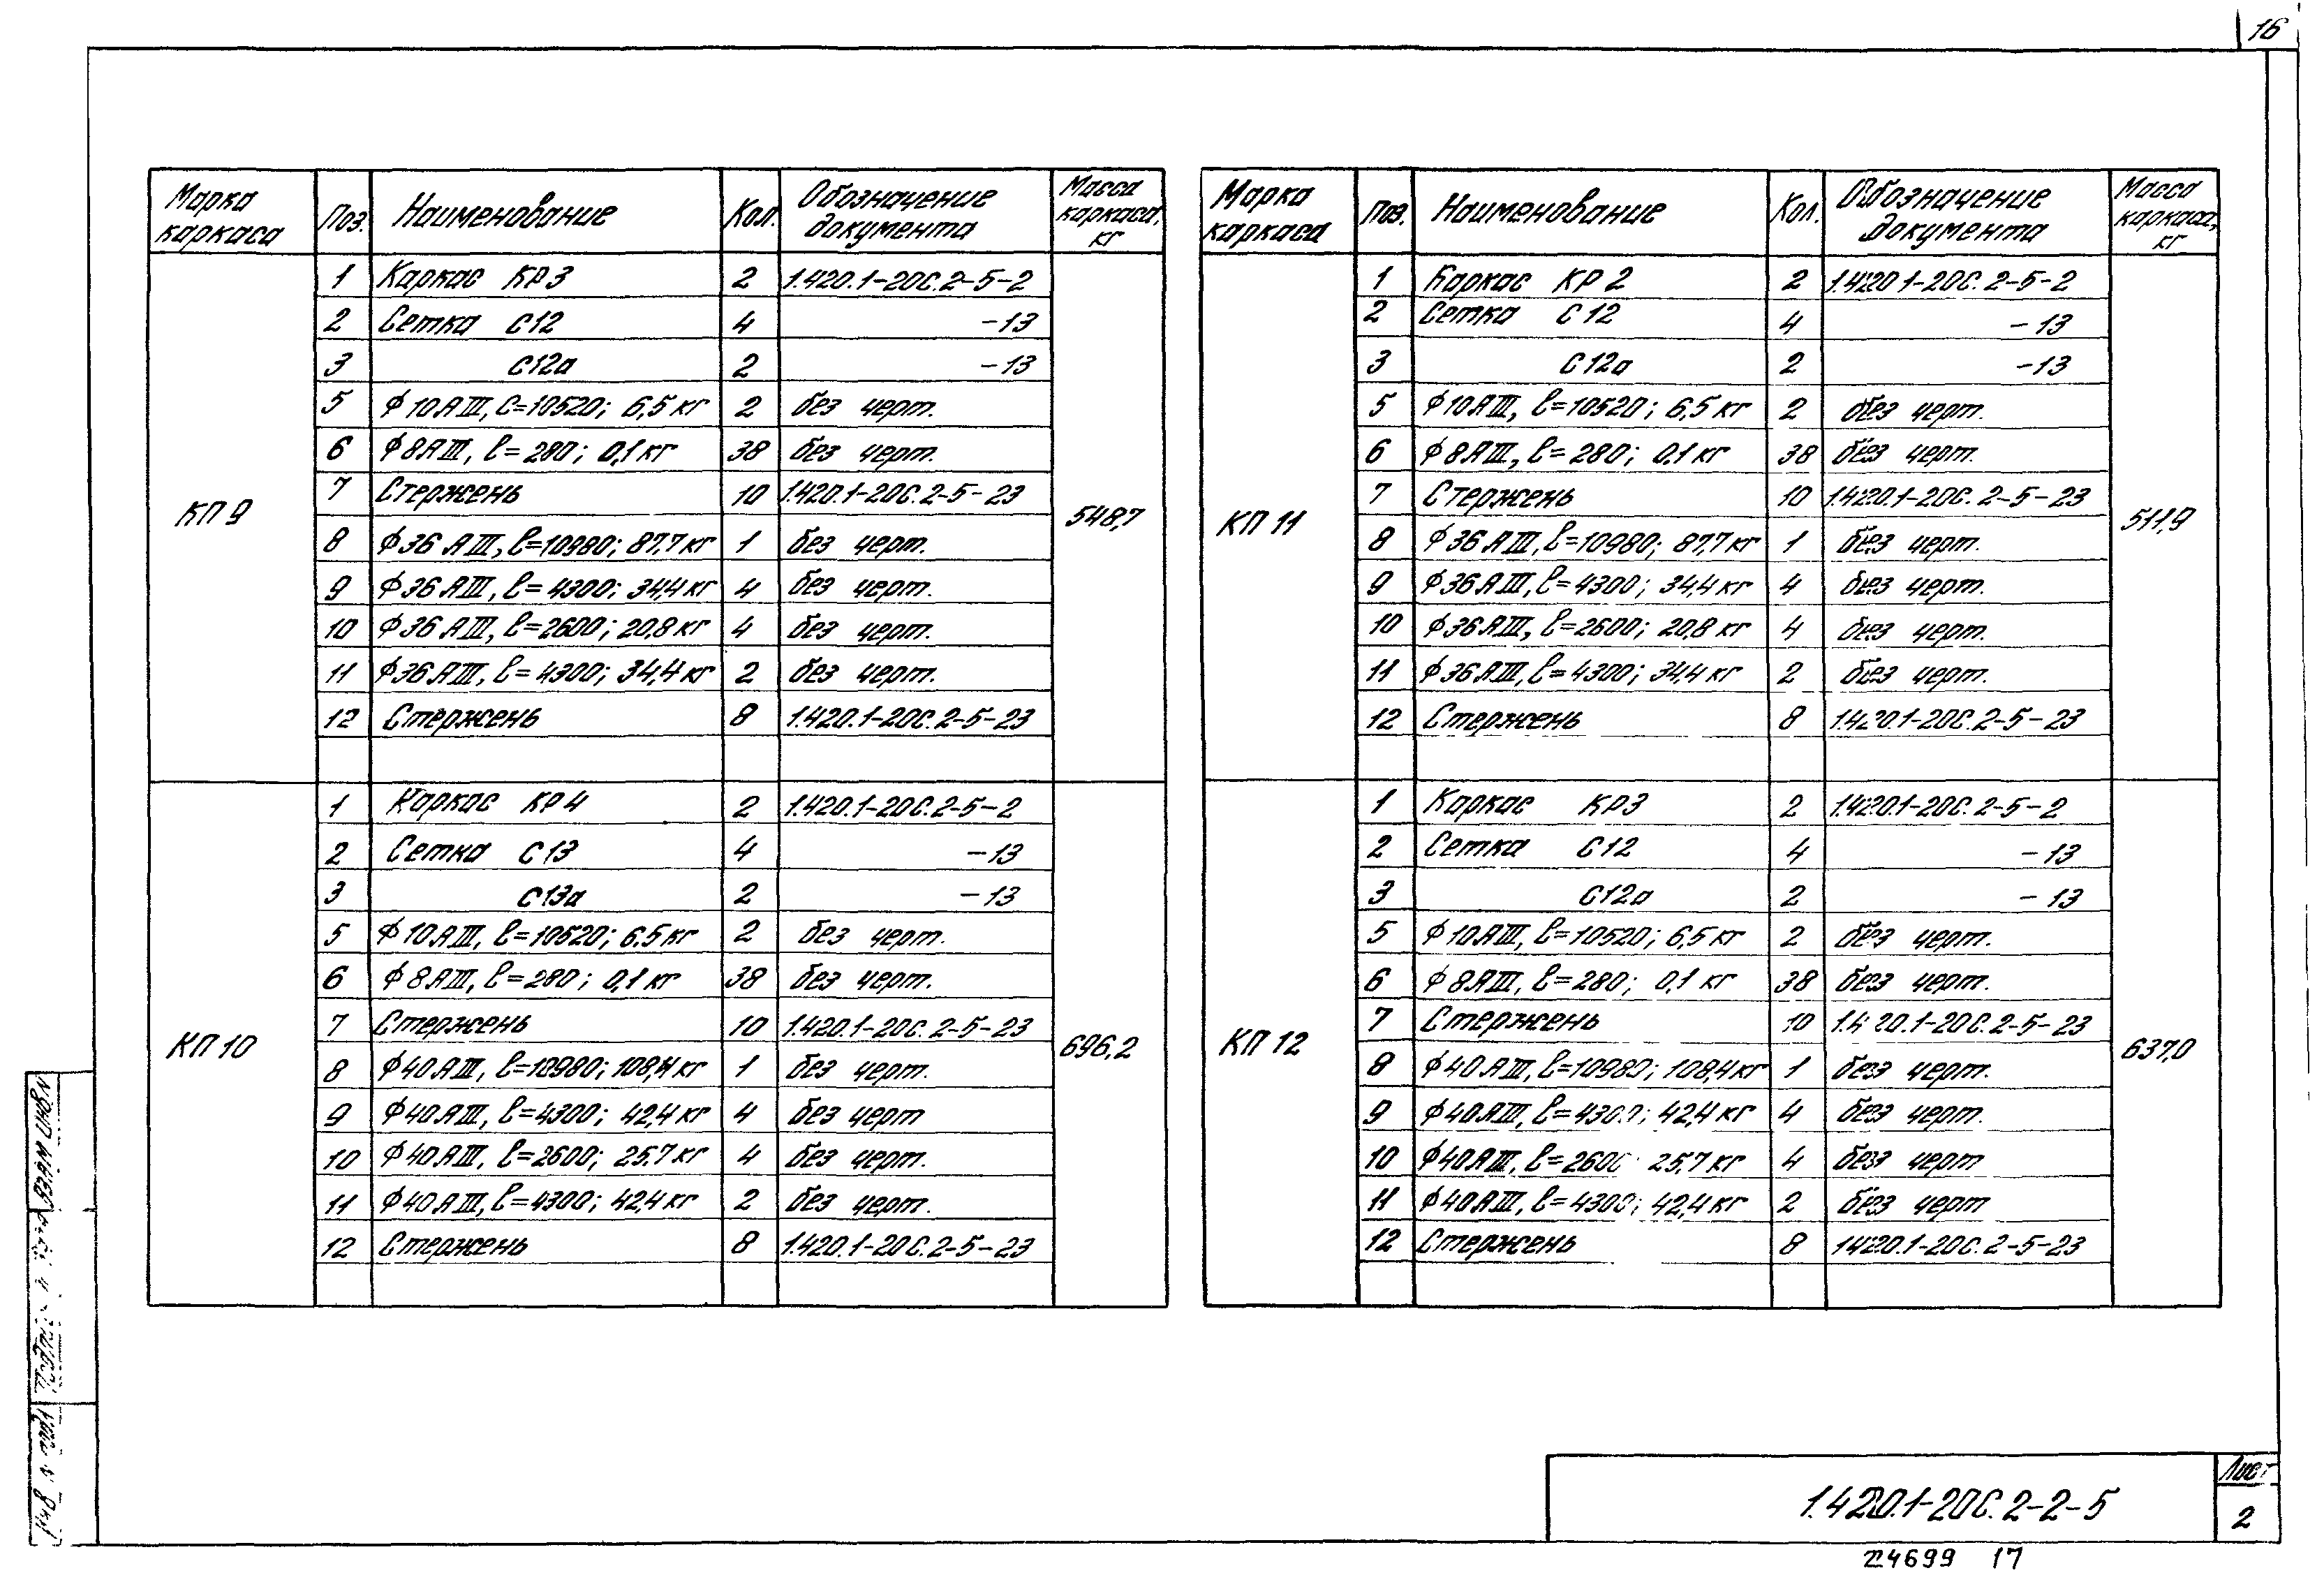 16
Марка каркаса | Поз. | Наименование | Кол. | Обозначение документа | Масса каркаса, кг
КП 9 | 548,7
1 | Каркас КР3 | 2 | 1.420.1-20С.2-5-2
2 | Сетка С12 | 4 | -13
3 | С12а | 2 | -13
5 | ф10АIII, С=10520; 6,5 кг | 2 | без черт.
6 | ф8АIII, ℓ=280; 0,1 кг | 38 | без черт.
7 | Стержень | 10 | 1.420.1-20С.2-5-23
8 | ф36АIII, ℓ=10980; 87,7 кг | 1 | без черт.
9 | ф36АIII, ℓ=4300; 34,4 кг | 4 | без черт.
10 | ф36АIII, ℓ=2600; 20,8 кг | 4 | без черт.
11 | ф36АIII, ℓ=4300; 34,4 кг | 2 | без черт.
12 | Стержень | 8 | 1.420.1-20С.2-5-23
КП 10 | 696,2
1 | Каркас КР4 | 2 | 1.420.1-20С.2-5-2
2 | Сетка С13 | 4 | -13
3 | С13а | 2 | -13
5 | ф10АIII, ℓ=10520; 6.5 кг | 2 | без черт.
6 | ф8АIII, ℓ=280; 0,1 кг | 38 | без черт.
7 | Стержень | 10 | 1.420.1-20С.2-5-23
8 | ф40АIII, ℓ=10980; 108,4 кг | 1 | без черт.
9 | ф40АIII, ℓ=4300; 42,4 кг | 4 | без черт
10 | ф40АIII, ℓ=2600; 25,7 кг | 4 | без черт.
11 | ф40АIII, ℓ=4300; 42,4 кг | 2 | без черт.
12 | Стержень | 8 | 1.420.1-20С.2-5-23
Марка каркаса | Поз. | Наименование | Кол. | Обозначение документа | Масса каркаса, кг
КП 11 | 511,9
1 | Каркас КР2 | 2 | 1.420.1-20С.2-5-2
2 | Сетка С12 | 4 | -13
3 | С12а | 2 | -13
5 | ф10АIII, ℓ=10520; 6,5 кг | 2 | без черт.
6 | ф8АIII, ℓ=280; 0,1 кг | 38 | без черт.
7 | Стержень | 10 | 1.420.1-20С.2-5-23
8 | ф36АIII, ℓ=10980; 87,7 кг | 1 | без черт.
9 | ф36АIII, ℓ=4300; 34,4 кг | 4 | без черт.
10 | ф36АIII, ℓ=2600; 20,8 кг | 4 | без черт.
11 | ф36АIII, ℓ=4300; 34,4 кг | 2 | без черт.
12 | Стержень | 8 | 1.420.1-20С.2-5-23
КП 12 | 637,0
1 | Каркас КР3 | 2 | 1.420.1-20С.2-5-2
2 | Сетка С12 | 4 | -13
3 | С12а | 2 | -13
5 | ф10АIII, ℓ=10520; 6,5 кг | 2 | без черт.
6 | ф8АIII, ℓ=280; 0,1 кг | 38 | без черт.
7 | Стержень | 10 | 1.420.1-20С.2-5-23
8 | ф40АIII, ℓ=10980; 108,4 кг | 1 | без черт.
9 | ф40АIII, ℓ=4300; 42,4 кг | 4 | без черт.
10 | ф40АIII, ℓ=2600; 25,7 кг | 4 | без черт
11 | ф40АIII, ℓ=4300; 42,4 кг | 2 | без черт
12 | Стержень | 8 | 1.420.1-20С.2-5-23
1.420.1-20С.2-2-5
Лист
2
24699 17